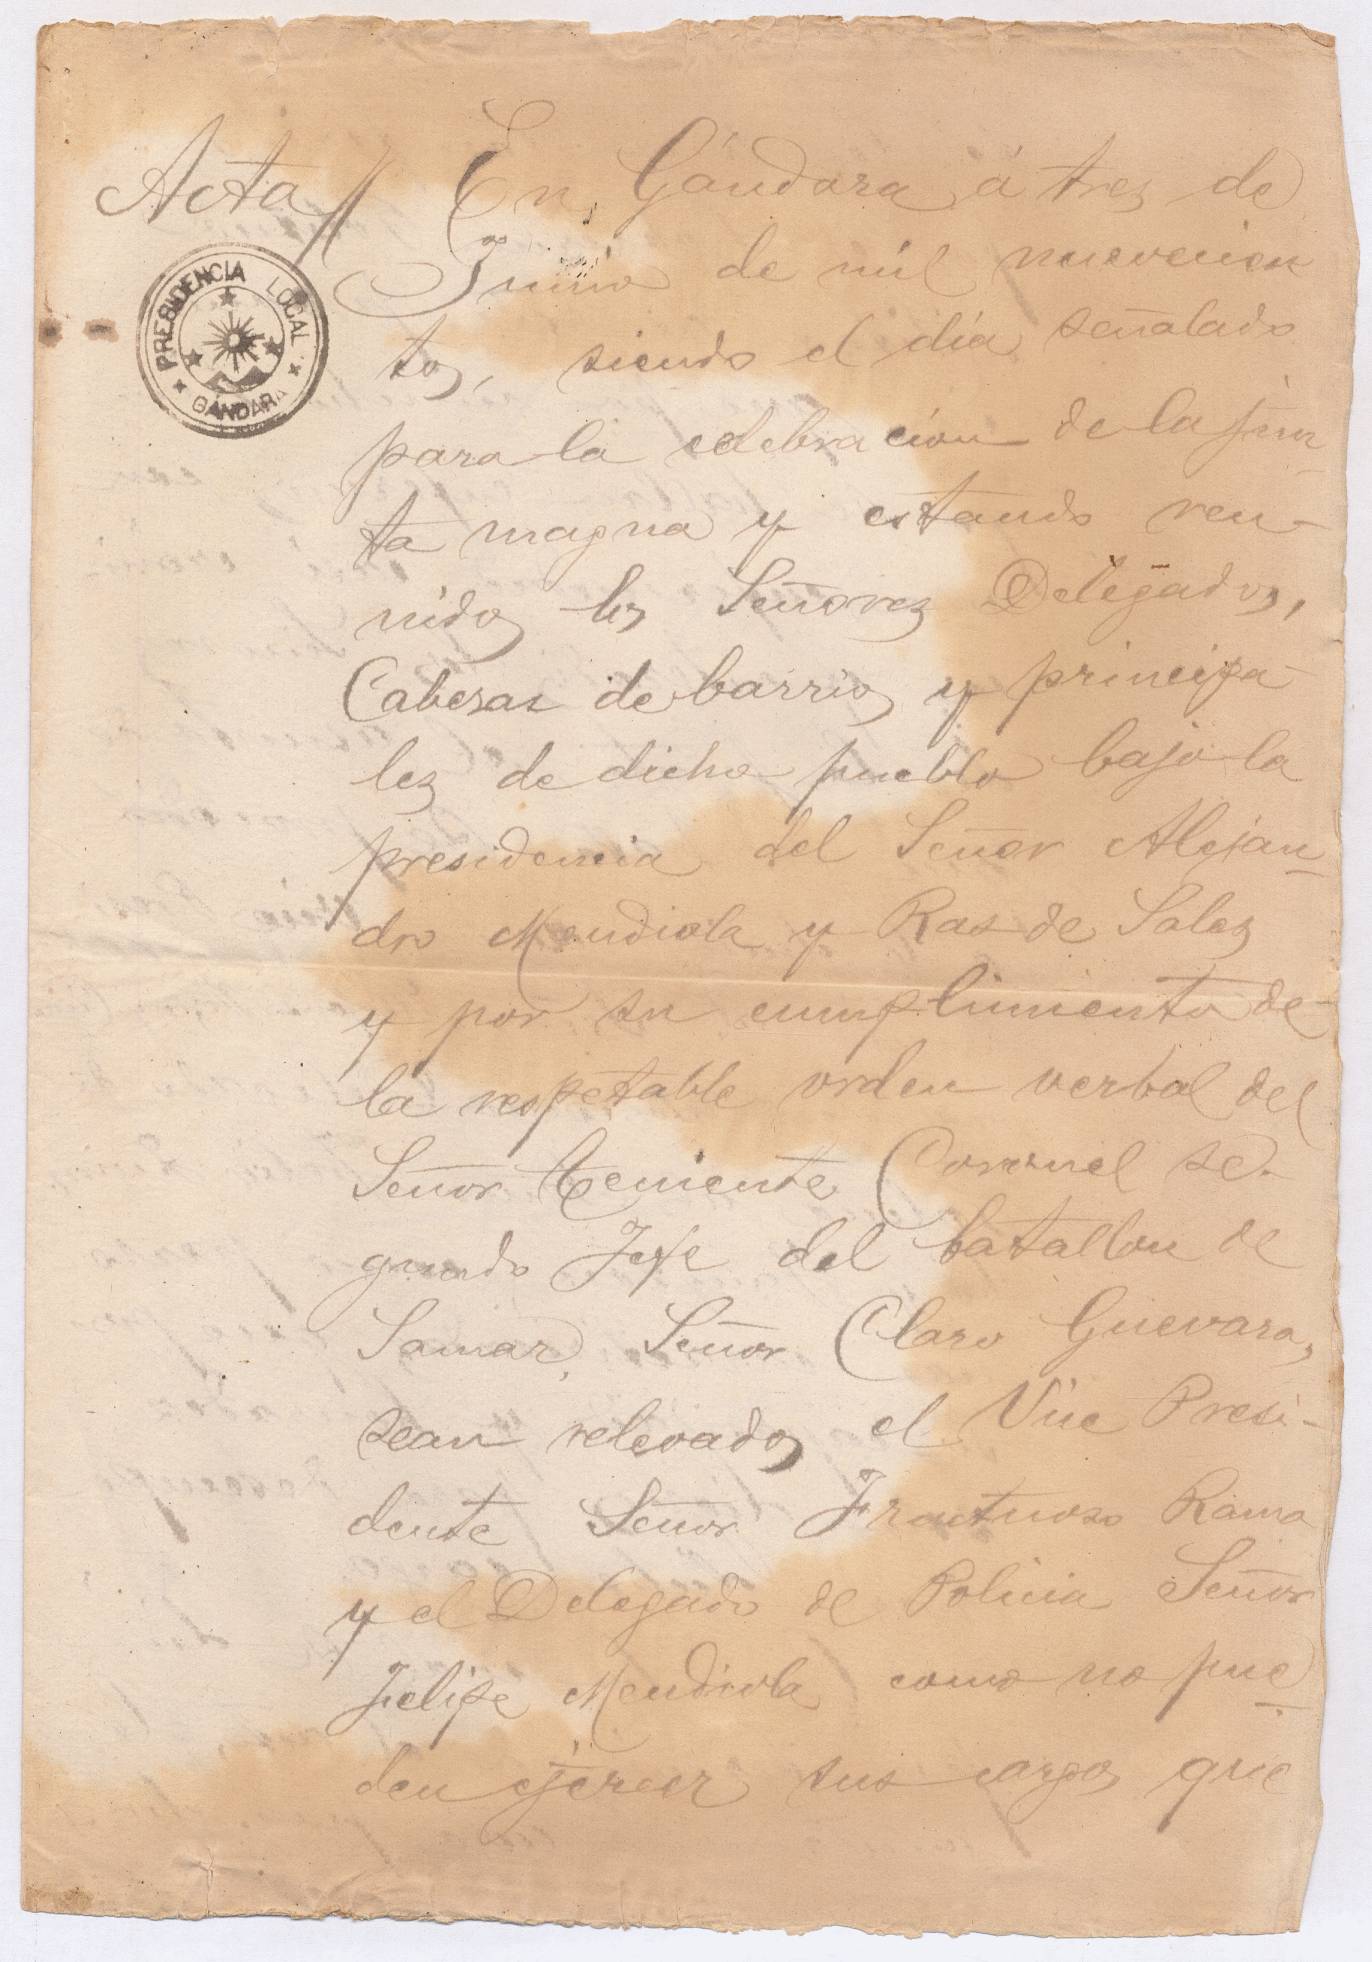 Acta // En Gándara á tres de
PRESIDENCIA LOCAL
GÁNDARA
Junio de mil novecien
tos, siendo el día señalado
para la celebración de la jun
ta magna y estando reu-
nidos los Señores Delegados,
Cabezas de barrios y principa
les de dicho pueblo bajo la
presidencia del Señor Alejan
dro Mendiola y Ras de Sales
y por su cumplimiento de
la respetable orden verbal del
Señor Teniente Coronel se-
gundo Jefe del batallon de
Samar, Señor Claro Guevara,
sean relevados el Vice Presi-
dente Señor Fructuoso Rama
y el Delegado de Policia Señor
Felipe Mendiola como no pue
den ejercer sus cargos que